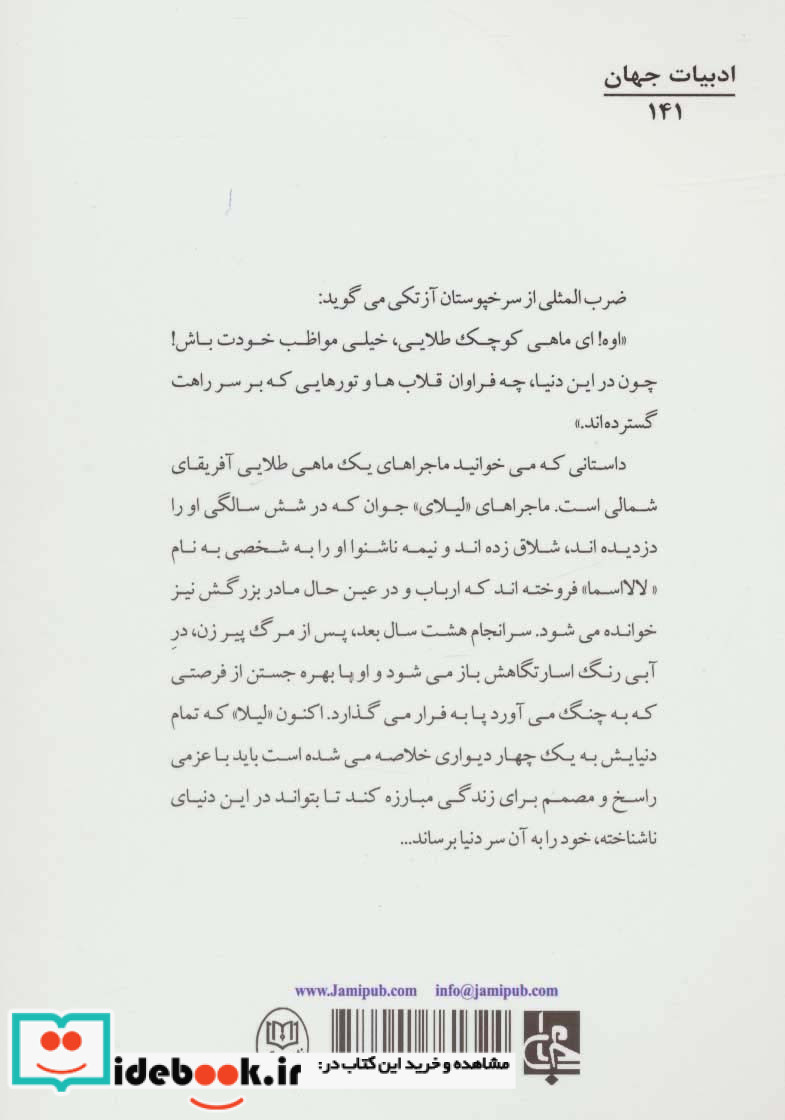 ادبیات جهان
۱۴۱
ضرب المثلی از سرخپوستان آزتکی می گوید:
«اوه! ای ماهی کوچک طلایی، خیلی مواظب خودت باش!
چون در این دنیا، چه فراوان قلاب ها و تورهایی که بر سر راهت
گسترده‌اند.»
داستانی که می خوانید ماجراهای یک ماهی طلایی آفریقای
شمالی است. ماجراهای «لیلای» جوان که در شش سالگی او را
دزدیده اند، شلاق زده اند و نیمه ناشنوا او را به شخصی به نام
«لالااسما» فروخته اند که ارباب و در عین حال مادر بزرگش نیز
خوانده می شود. سرانجام هشت سال بعد، پس از مرگ پیر زن، درِ
آبی رنگ اسارتگاهش باز می شود و او با بهره جستن از فرصتی
که به چنگ می آورد پا به فرار می گذارد. اکنون «لیلا» که تمام
دنیایش به یک چهار دیواری خلاصه می شده است باید با عزمی
راسخ و مصمم برای زندگی مبارزه کند تا بتواند در این دنیای
ناشناخته، خود را به آن سر دنیا برساند...
www.Jamipub.com info@jamipub.com
مشاهده و خرید این کتاب در:
idebook.ir